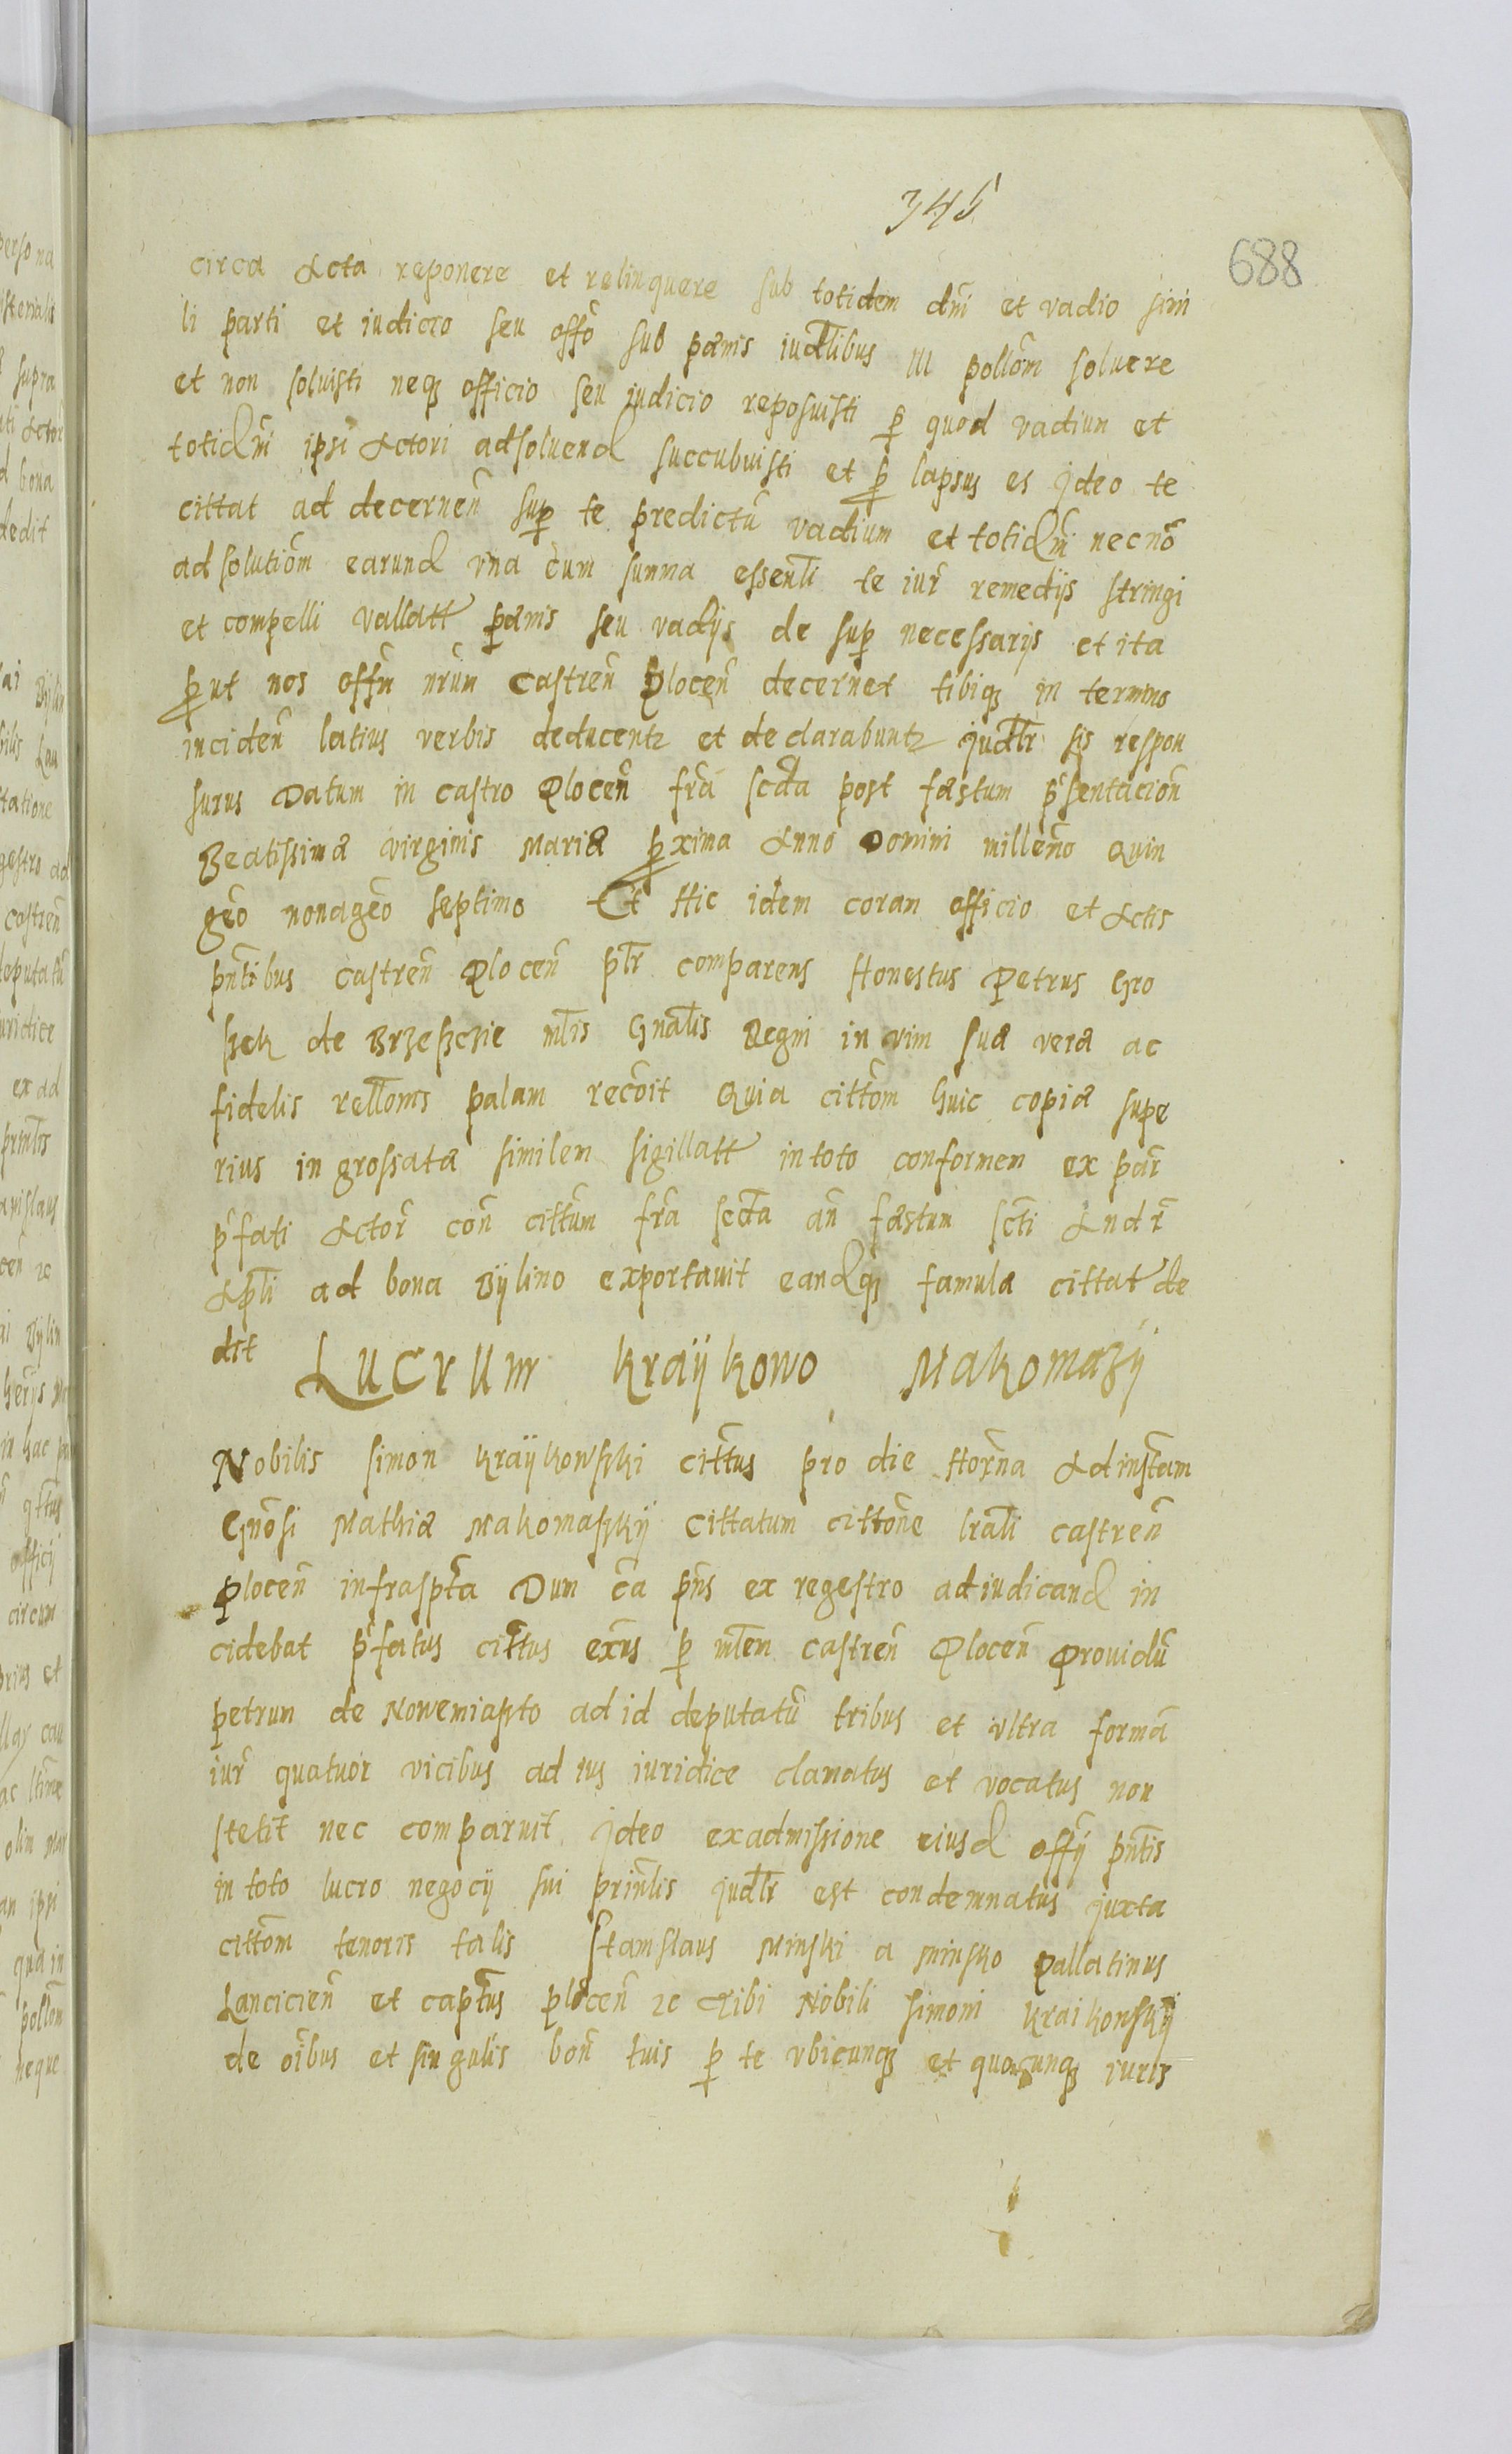 345
688
circa Acta reponere et relinquere sub totidem dm̄ et vadio simi
li parti et iudicio seu offo sub pœnis iudlibus III pollom̄ soluere
et non soluisti neqꝫ officio seu iudicio reposuisti ꝓ quod vadium et
totidm̄ ipsi Actori adsoluend succubuisti et ꝑ lapsus es Jdeo te
cittat ad decernen̄ suꝑ te predictū vadium et totidm̄ necnō
ad solutiōm earund vna cum summa essentli te iur̄ remedijs stringi
et compelli vallatt pœnis seu vadijs de suꝑ necessarijs et ita
ꝓut nos offm̄ nrūm Castren̄ Plocen̄ decernet tibiqꝫ in termino
inciden̄ latius verbis deducentꝛ et declarabuntꝛ Judlr sis respon
surus Datum in Castro Plocen̄ frā scda post fæstum p̄sentacion̄
Beatissimæ virginis Mariæ ꝓxima Anno Domini millen̄o Quin
gēo nonagēo septimo Et Hic idem coram officio et Actis
pn̄tibus Castren̄ Plocen̄ ptr̄ comparens Honestus Petrus Gro
szek de Brzeszczie mlis Gnalis Regni in vim suæ veræ ac
fidelis relloms palam recōit Quia cittōm huic copiæ supe
rius in grossatæ similem sigillatt in toto conformem ex par̄
p̄fati Actor̄ con̄ cittūm frā scda an̄ fæstum scti Andr̄
Apli ad bona Bÿlino exportauit eandqꝫ famulæ cittat de
dit
Lucrum Kraÿkowo Makomazÿ
Nobilis Simon Kraÿkowszki cittus pro die Horna Ad instam̄
Gn̄osi Mathiæ Makomaszkÿ Cittatum cittōne lrali castren̄
Plocen̄ infraspta Dum cā pn̄s ex regestro adiudicand in
cidebat p̄fatus cittus exus ꝑ mlem Castren̄ Plocen̄ Prouidū
petrum de Nowemiaszto ad id deputatū tribus et vltra formā
iur̄ quatuor vicibus ad ius iuridice clamatus et vocatus non
stetit nec comparuit Jdeo exadmissione eiusd offÿ pn̄tis
in toto lucro negocij sui prinlis Judlr est condemnatus juxta
cittōm tenoris talis Stanislaus Minski a minsko Pallatinus
Lancicien̄ et captus plocen̄ ꝛc Tibi Nobili Simoni Kraikowskÿ
de oībus et singulis bon̄ tuis ꝑ te vbicunqꝫ et quocunqꝫ iuris